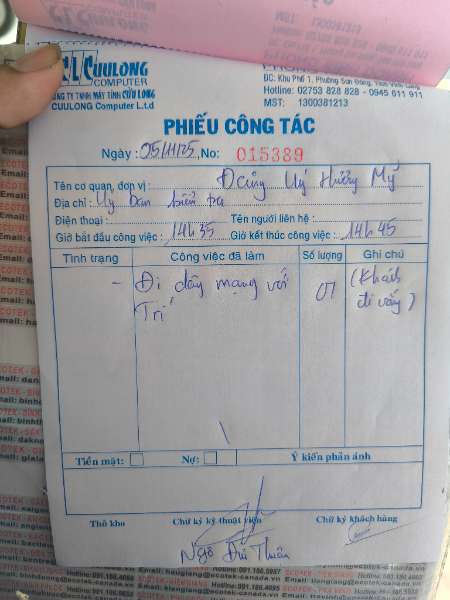 CUULONG
COMPUTER
CÔNG TY TNHH MÁY TÍNH CỬU LONG
CUULONG Computer L.t.d
ĐC: Khu Phố 1, Phường Sơn Đông, Tỉnh Vĩnh Long
Hotline: 02753 828 828 - 0945 611 911
MST: 1300381213
PHIẾU CÔNG TÁC
Ngày: 05/11/25 No: 015389
Tên cơ quan, đơn vị: Đảng Uỷ Hương Mỹ
Địa chỉ: Uỷ Ban kiểm tra
Điện thoại: Tên người liên hệ:
Giờ bắt đầu công việc: 14h35 Giờ kết thúc công việc: 14h45
Tình trạng Công việc đã làm Số lượng Ghi chú
- Đi dây mạng với 01 (Khách
Trí đi vắng)
Tiền mặt: Nợ: Ý kiến phản ánh
Thủ kho Chữ ký kỹ thuật viên Chữ ký khách hàng
Ngô Đức Thuân